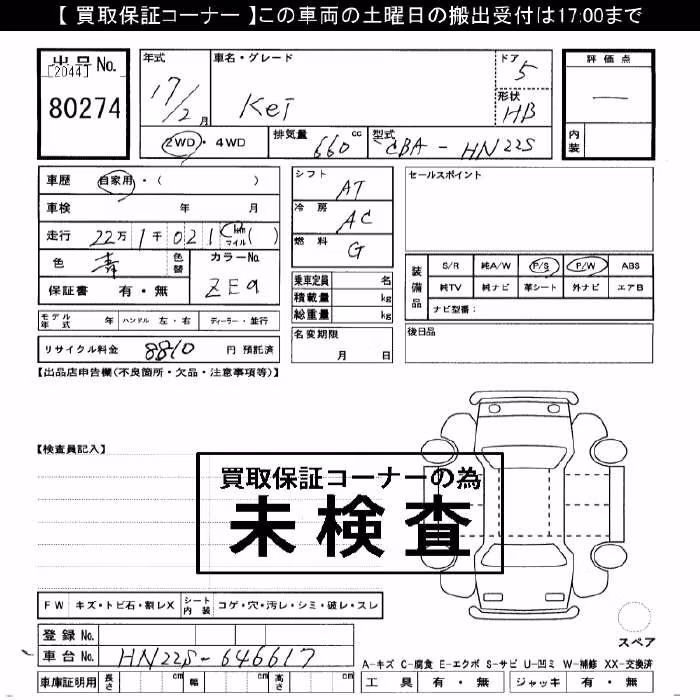 【 買取保証コーナー 】この車両の土曜日の搬出受付は17:00まで
出品No.
[2044]
80274
年式
17/2 月
車名・グレード
Kei
ドア
5
形状
HB
2WD・4WD
排気量
660 cc
型式
CBA-HN22S
評価点
―
内装
車歴 自家用・( )
車検 年 月
走行 22万1千021 km マイル ( )
色 青
色替
カラーNo.
ZE9
保証書 有・無
シフト
AT
冷房
AC
燃料
G
乗車定員 名
積載量 kg
総重量 kg
名変期限
月 日
セールスポイント
装備品
S/R 純A/W P/S P/W ABS
純TV 純ナビ 革シート 外ナビ エアB
ナビ型番：
後日品
モデル年式 年 ハンドル 左・右 ディーラー・並行
リサイクル料金 8810 円 預託済
【出品店申告欄(不良箇所・欠品・注意事項等)】
【検査員記入】
買取保証コーナーの為
未検査
FW キズ・トビ石・割レX シート内装 コゲ・穴・汚レ・シミ・破レ・スレ
登録No.
車台No. HN22S-646617
車庫証明用 長さ cm 幅 cm 高さ cm
スペア
A-キズ C-腐食 E-エクボ S-サビ U-凹ミ W-補修 XX-交換済
工具 有・無 ジャッキ 有・無